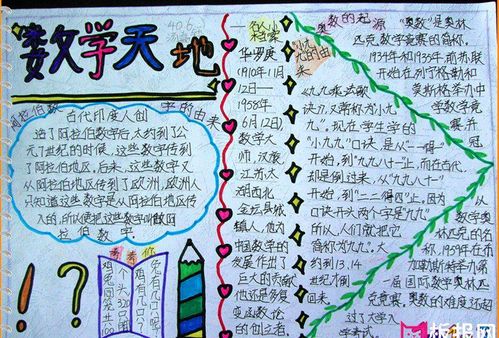 数学天地
阿拉伯数字的由来
古代印度人创
造了阿拉伯数字后,大约到了公
元7世纪的时候,这些数字传到
了阿拉伯地区。后来,这些数字又
从阿拉伯地区传到了欧洲,欧洲人
只知道这些数字是从阿拉伯地区传
入的,所以便把这些数字叫做阿
拉伯数字
考考你
名人小档案
华罗庚
1910年11月
12日—
1958年
6月12日)
数学大
师,汉族,
江苏太
湖西北
金坛县
镇人,他为
中国数学的
发展作出了
巨大的贡献
他还是多复
变函数论
的创立者。
小九九的由来
《九九乘法歌
诀》,又常称为“小九
九”。现在学生学的
“小九九”口诀,是从“一一得一”
开始,到“九九八十一”止,而在古代,
却是倒过来,从“九九八十一”
开始,到“二二得四”止。因为
口诀开头两个字是“九九”,
所以,人们就把它
简称为“九九”。大
约到13、14
世纪才倒
回来。
奥数的起源
“奥数”是奥林
匹克数学竞赛的简称。
1934年和1935年,前苏联
开始在列宁格勒和
莫斯科举办中
学数学竞
赛,并
冠
以
数学
奥林
匹克的名
称,1959年在布
加勒斯特举办第
一届国际数学奥林匹
克竞赛。奥数的难度远超
过了大学入
学考试。
板报网